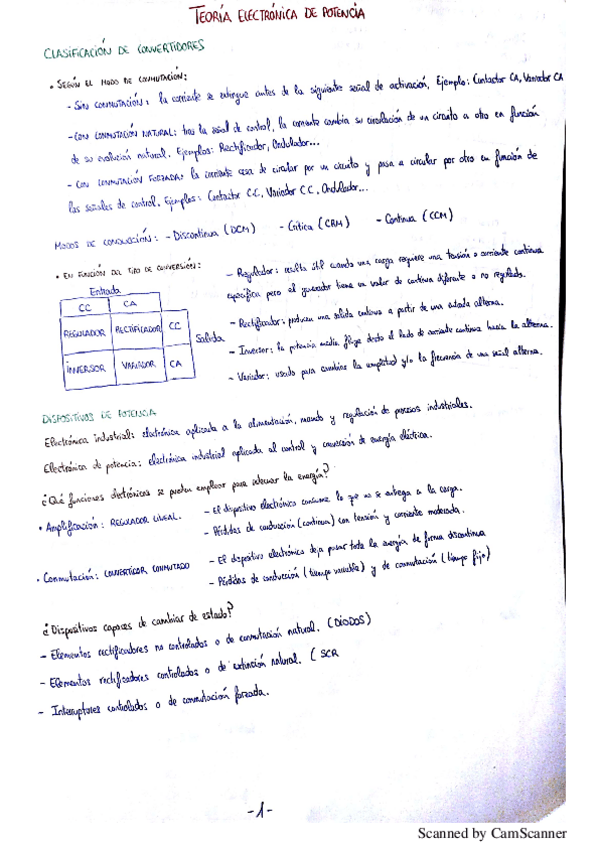 TEORÍA ELECTRÓNICA DE POTENCIA
CLASIFICACIÓN DE CONVERTIDORES
• SEGÚN EL MODO DE CONMUTACIÓN:
- SIN CONMUTACIÓN: la corriente se extingue antes de la siguiente señal de activación, Ejemplo: Contactor CA, Variador CA
- CON CONMUTACIÓN NATURAL: tras la señal de control, la corriente cambia su circulación de un circuito a otro en función
de su evolución natural. Ejemplos: Rectificador, Ondulador...
- CON CONMUTACIÓN FORZADA: la corriente cesa de circular por un circuito y pasa a circular por otro en función de
las señales de control. Ejemplos: Contactor C.C, Variador C C, Ondulador...
MODOS DE CONDUCCIÓN: - Discontinua (DCM) - Crítica (CRM) - Continua (CCM)
• EN FUNCIÓN DEL TIPO DE CONVERSIÓN:
Entrada
CC CA
REGULADOR RECTIFICADOR CC
Salida
INVERSOR VARIADOR CA
- Regulador: resulta útil cuando una carga requiere una tensión o corriente continua
específica pero el generador tiene un valor de continua diferente o no regulado.
- Rectificador: producen una salida continua a partir de una entrada alterna.
- Inversor: la potencia media fluye desde el lado de corriente continua hacia la alterna.
- Variador: usado para cambiar la amplitud y/o la frecuencia de una señal alterna.
DISPOSITIVOS DE POTENCIA
Electrónica industrial: electrónica aplicada a la alimentación, mando y regulación de procesos industriales.
Electrónica de potencia: electrónica industrial aplicada al control y conversión de energía eléctrica.
¿Qué funciones electrónicas se pueden emplear para adecuar la energía?
• Amplificación: REGULADOR LINEAL.
- El dispositivo electrónico consume lo que no se entrega a la carga.
- Pérdidas de conducción (continua) con tensión y corriente moderada.
• Conmutación: CONVERTIDOR CONMUTADO
- El dispositivo electrónico deja pasar toda la energía de forma discontinua
- Pérdidas de conducción (tiempo variable) y de conmutación (tiempo fijo)
¿Dispositivos capaces de cambiar de estado?
- Elementos rectificadores no controlados o de conmutación natural. (DIODOS)
- Elementos rectificadores controlados o de extinción natural. (SCR
- Interruptores controlados o de conmutación forzada.
-1-
Scanned by CamScanner